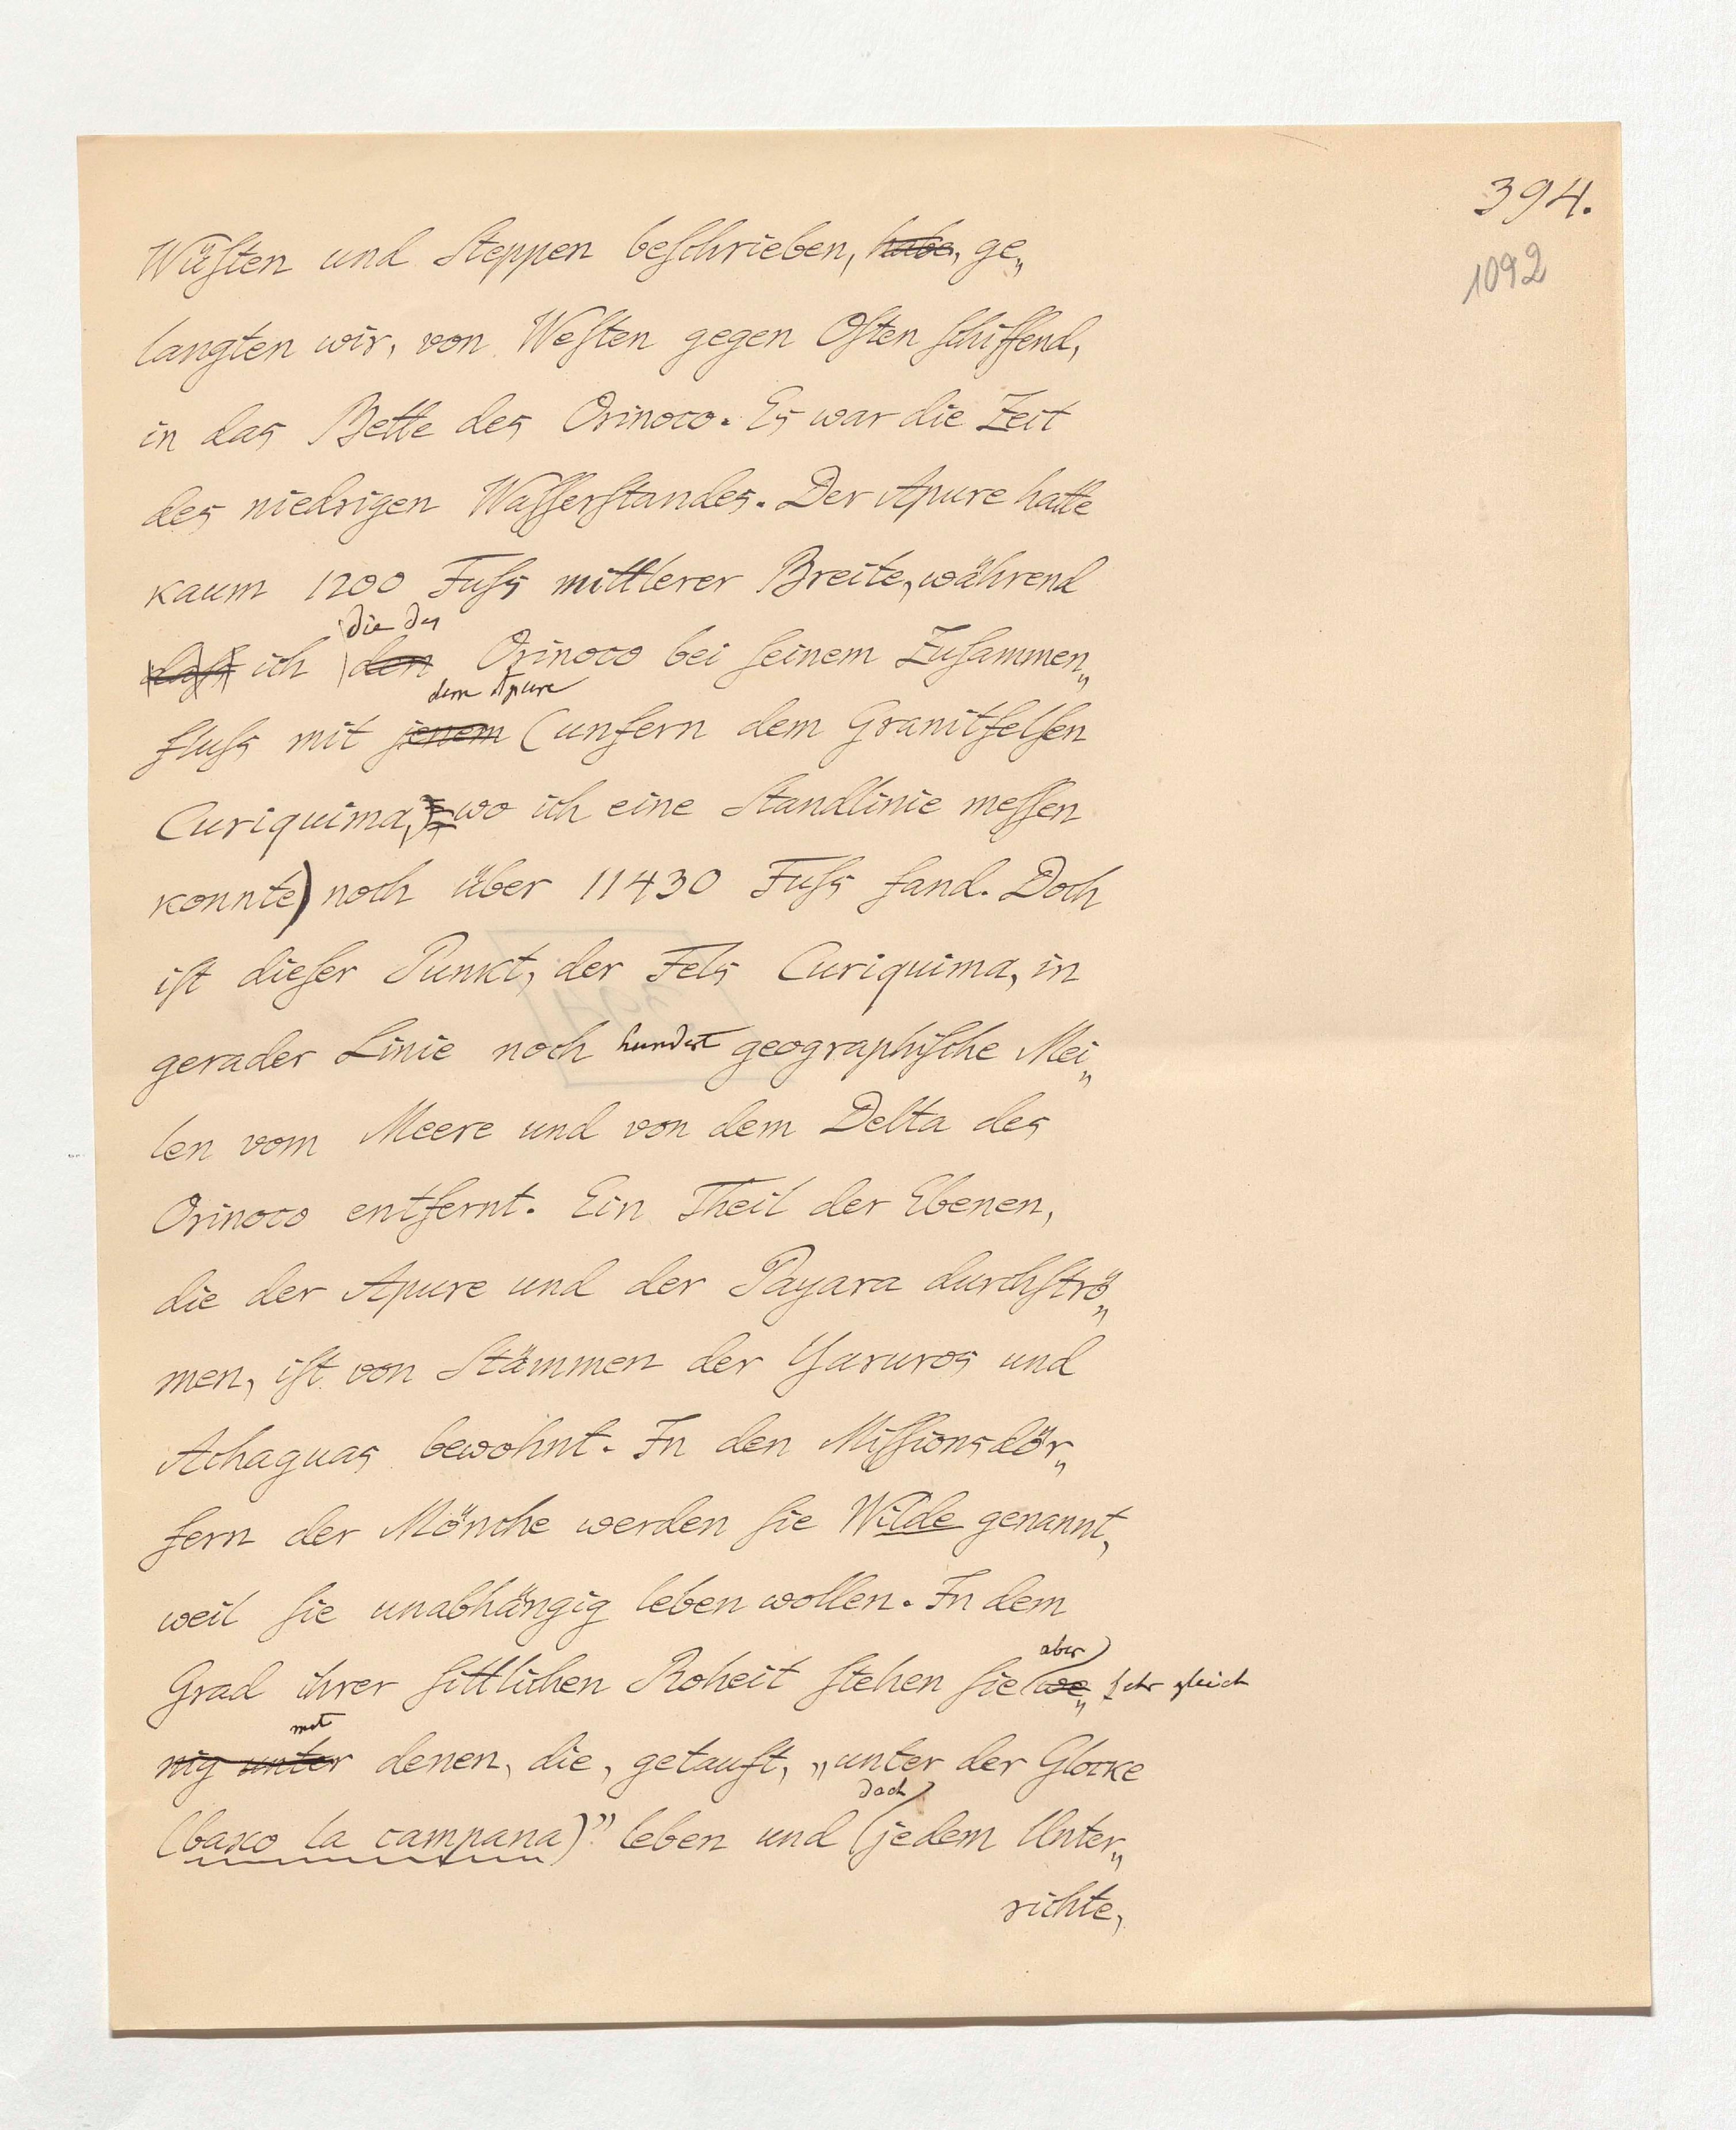 394.
1092
Wüſten und Steppen beſchrieben, habe, ge„
langten wir, von Weſten gegen Oſten ſchiffend,
in das Bette des Orinoco. Es war die Zeit
des niedrigen Waſſerſtandes. Der Apure hatte
kaum 1200 Fuſs mittlerer Breite, während
die des
daſs ich den Orinoco bei ſeinem Zuſammen„
dem Apure
fluſs mit jenem (unfern dem Granitfelſen
Curiquima, wo ich eine Standlinie meſſen
konnte) noch über 11430 Fuſs fand. Doch
iſt dieſer Punkt, der Fels Curiquima, in
gerader Linie noch hundert geographiſche Mei„
len vom Meere und von dem Delta des
Orinoco entfernt. Ein Theil der Ebenen,
die der Apure und der Payara durchſtrö„
men, iſt von Stämmen der Yaruros und
Achaguas bewohnt. In den Miſſionsdör„
fern der Mönche werden ſie Wilde genannt,
weil ſie unabhängig leben wollen. In dem
aber
Grad ihrer ſittlichen Roheit ſtehen ſie we„ ſehr gleich
mit
nig unter denen, die, getauft, „unter der Glocke
doch
(baxo la campana)” leben und jedem Unter„
richte,